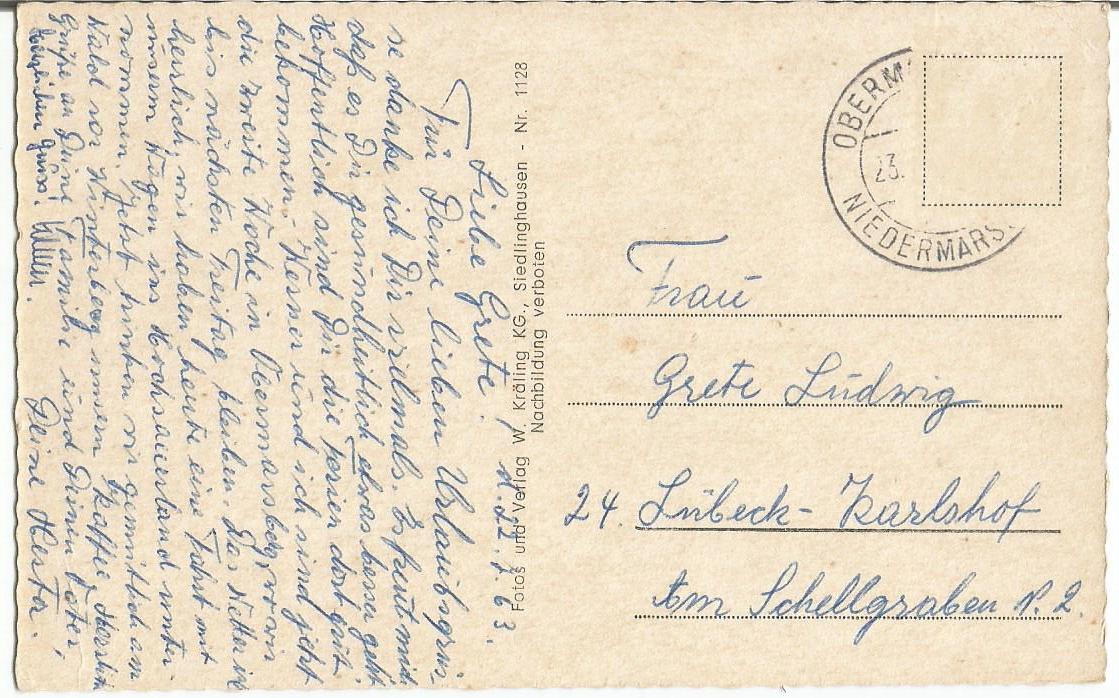 Liebe Grete! d. 22. 7. 63.
Für Deine lieben Urlaubsgrüs-
se danke ich Dir vielmals. Es freut mich
daß es Dir gesundheitlich etwas besser geht
Hoffentlich sind Dir die Ferien dort gut
bekommen. Werner und ich sind jetzt
die zweite Woche in Obermarsberg, wo wir
bis nächsten Freitag bleiben. Das Wetter ist
herrlich, wir haben heute eine Fahrt mit
unserm Wagen ins Hochsauerland unter-
nommen. Jetzt trinken wir gemütlich am
Wald vor Winterberg unsern Kaffee. Herzlich
Grüße an Deine Familie und Deinen Vater,
Deine Hester.
herzlichen Gruss!
Fotos und Verlag W. Kräling KG., Siedlinghausen - Nr. 1128
Nachbildung verboten
OBERM
23.
NIEDERMARS
Frau
Grete Ludwig
24. Lübeck-Karlshof
Am Schellgraben N. 2.